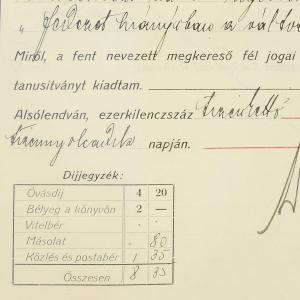 „ fedezet hiányában a vált
Miről, a fent nevezett megkereső fél jogai
tanusitványt kiadtam.
Alsólendván, ezerkilenczszáz tizenkettő
tizennyolcadik napján.
Díjjegyzék:
Óvásdij 4 20
Bélyeg a könyvön 2 —
Vitelbér . .
Másolat . 80
Közlés és postabér 1 35
Összesen 8 35